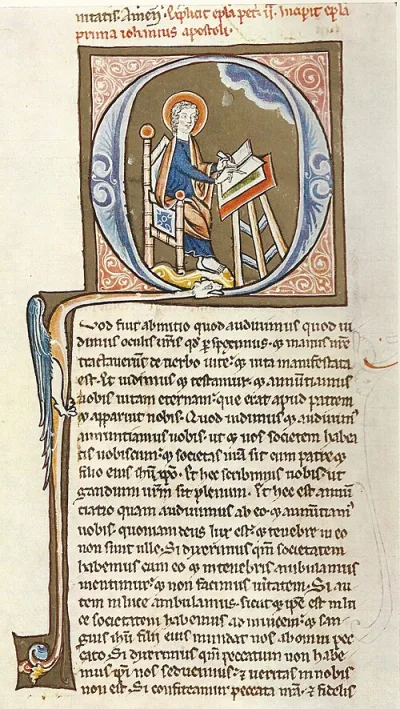 nitatis. Amen. Explicit epla pet. ii. Incipit epla
prima iohannis apostoli.
Quod fuit ab initio quod audivimus quod vi
dimus oculis nris qd pspeximus. et manus nre
tractaverunt de verbo vite. et vita manifestata
est. Et vidimus et testamur. et annuntiamus
vobis vitam eternam. que erat apud patrem
et apparuit nobis. Quod vidimus et audivim
annuntiamus vobis. ut et vos societem habea
tis nobiscum. et societas nra sit cum patre et
filio eius ihu xpo. Et hec scribimus vobis. ut
gaudium vrm sit plenum. Et hec est annun
ciatio quam audivimus ab eo. et annuntiam
vobis. quoniam deus lux est. et tenebre in eo
non sunt ulle. Si dixerimus qm societatem
habemus cum eo et in tenebris ambulamus
mentimur. et non facimus vitatem. Si au
tem in luce ambulamus. sicut et ipse est in lu
ce societatem habemus ad invicem. et san
guis ihu filii eius mundat nos ab omni pec
cato. Si dixerimus qm peccatum non habe
mus ipsi nos seducimus. et veritas in nobis
non est. Si confiteamur peccata nra. et fidelis